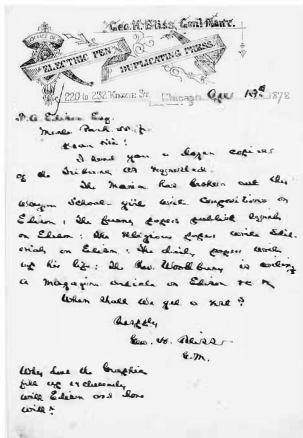 OFFICE OF
Geo. H. Bliss, Gen'l Man'r.
ELECTRIC PEN
DUPLICATING PRESS
220 to 232 Kinzie St.
Chicago 19th 1878
T. A. Edison Esq.
Menlo Park N. J.
Dear Sir:
I send you a dozen copies
of the Tribune as requested.
The Mania has broken out this
way School girls write compositions on
Edison. The funny papers publish squibs
on Edison. The religious papers write Edit
orials on Edison. The daily papers write
up his life. The Rev. is writing
a Magazine article on Edison &c &c
When shall we get a rest?
Respfly
Geo. H. Bliss
G.M.
Why dont the Graphic
fill up exclusively
with Edison and done
with?